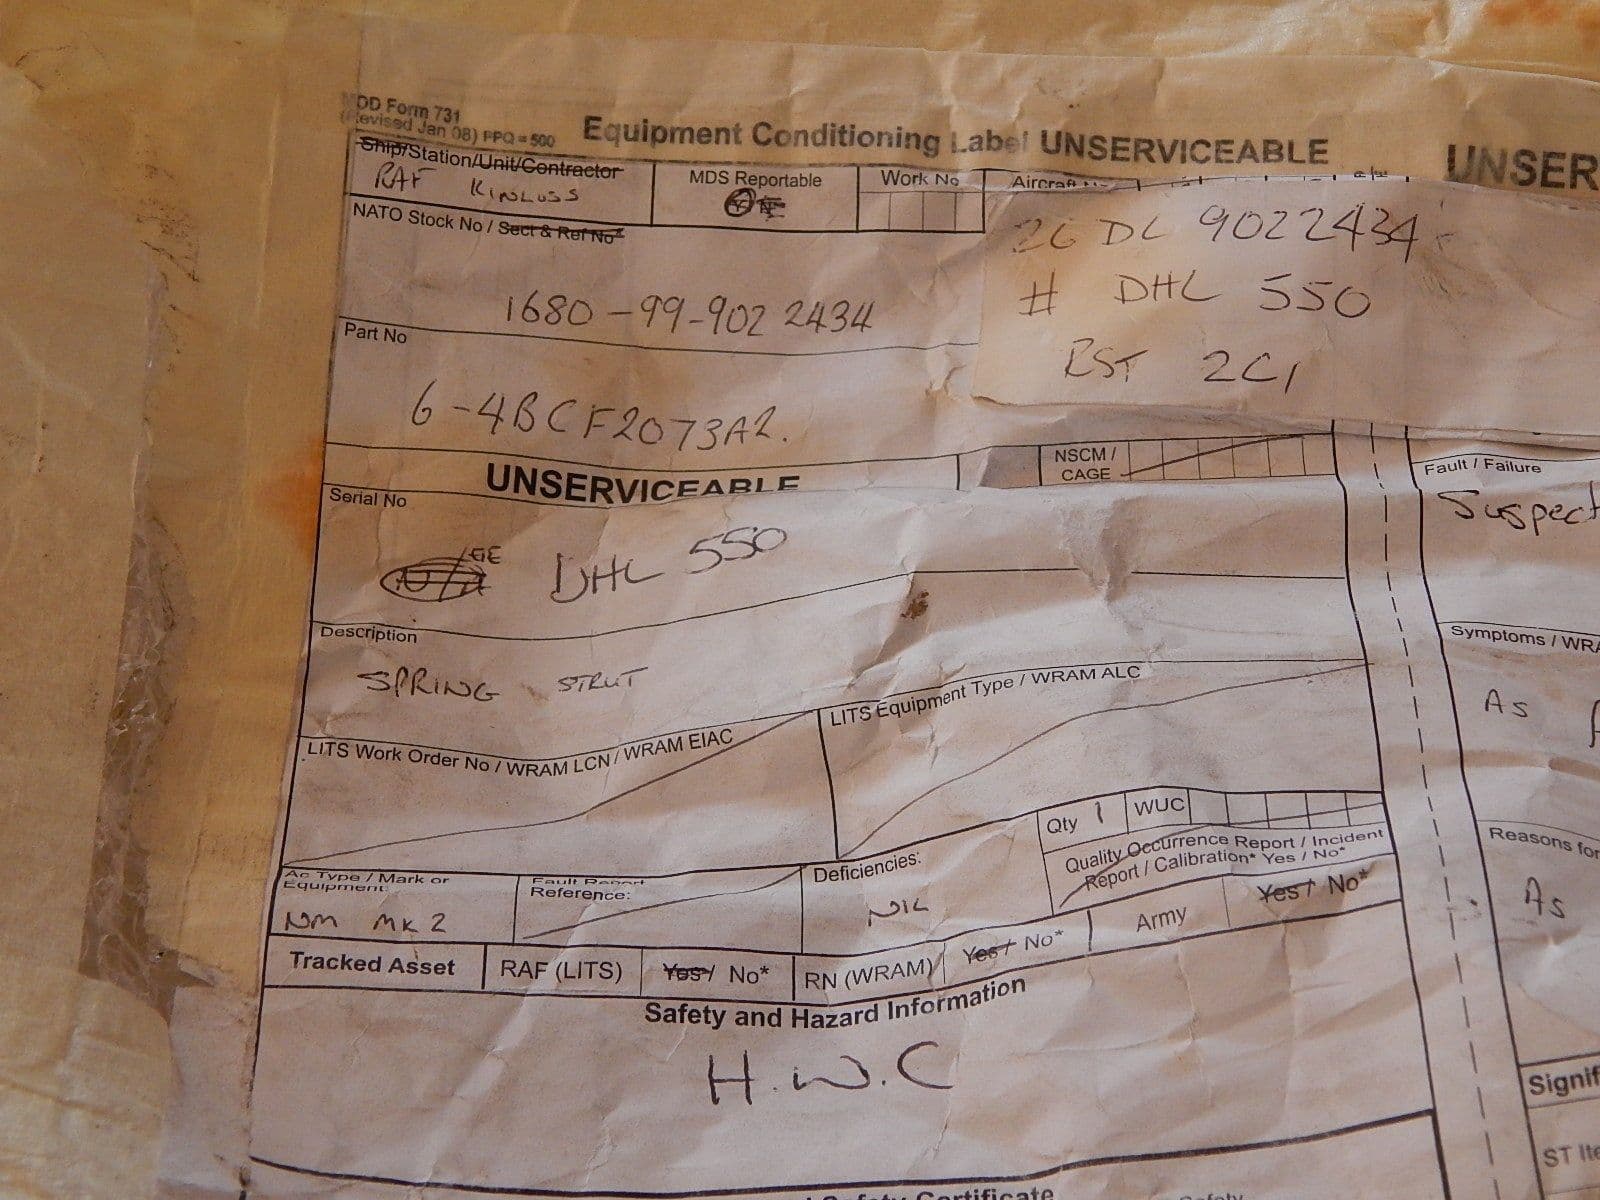 MOD Form 731
(Revised Jan 08) PPQ = 500
Equipment Conditioning Label UNSERVICEABLE
UNSER
Ship/Station/Unit/Contractor
RAF KINLOSS
MDS Reportable
Work No
Aircraft
NATO Stock No / Sect & Ref No*
1680-99-902 2434
26 DL 9022434
# DHL 550
RST 2C1
Part No
6-4BCF2073A2.
UNSERVICEABLE
NSCM /
CAGE
Fault / Failure
Suspect
Serial No
N/A GE DHL 550
Description
SPRING STRUT
Symptoms / WRA
As
LITS Work Order No / WRAM LCN / WRAM EIAC
LITS Equipment Type / WRAM ALC
Qty 1 WUC
Quality Occurrence Report / Incident
Report / Calibration* Yes / No*
Reasons for
As
Ac Type / Mark or
Equipment:
NM MK 2
Fault Report
Reference:
Deficiencies:
NIL
Tracked Asset RAF (LITS) Yes / No* RN (WRAM) Yes / No* Army Yes / No*
Safety and Hazard Information
H.W.C
Signif
ST Ite
Safety Certificate
Safety